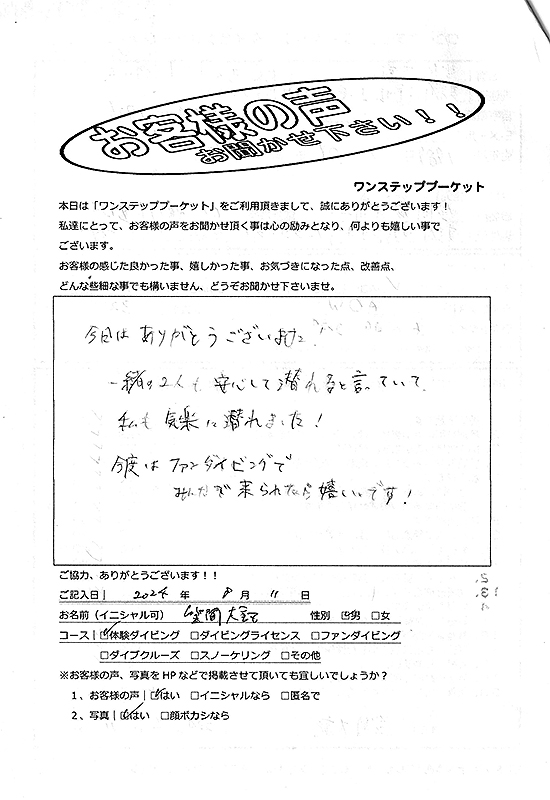 お客様の声
お聞かせ下さい！！
ワンステッププーケット
本日は「ワンステッププーケット」をご利用頂きまして、誠にありがとうございます！
私達にとって、お客様の声をお聞かせ頂く事は心の励みとなり、何よりも嬉しい事で
ございます。
お客様の感じた良かった事、嬉しかった事、お気づきになった点、改善点、
どんな些細な事でも構いません、どうぞお聞かせ下さいませ。
今日はありがとうございました。
一緒の2人も安心して潜れると言っていて、
私も気楽に潜れました！
今度はファンダイビングで
みんなで来られたら嬉しいです！
ご協力、ありがとうございます！！
ご記入日| 2024 年 8 月 11 日
お名前（イニシャル可） 笠間 性別 ☑男 □女
コース| ☑体験ダイビング □ダイビングライセンス □ファンダイビング
□ダイブクルーズ □スノーケリング □その他
※お客様の声、写真をHPなどで掲載させて頂いても宜しいでしょうか？
1、お客様の声| ☑はい □イニシャルなら □匿名で
2、写真| ☑はい □顔ボカシなら